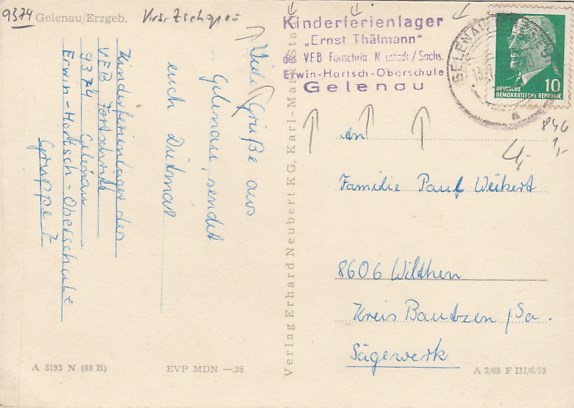 9374 Gelenau/Erzgeb. Kreis Zschopau
Viele Grüße aus
Gelenau, sendet
euch Dietmar
Kinderferienlager des
VEB Fortschritt
9374 Gelenau
Erwin-Hartsch-Oberschule
Gruppe 7
A 5193 N (88 B) EVP MDN —,25
Verlag Erhard Neubert KG, Karl-Marx-Stadt
Kinderferienlager
„Ernst Thälmann"
des VEB Fortschritt Neustadt/Sachs.
Erwin-Hartsch-Oberschule
Gelenau
GELENAU
DEUTSCHE
DEMOKRATISCHE REPUBLIK
10
a
846
1,-
4,-
An
Familie Paul Weikert
8606 Wilthen
Kreis Bautzen/Sa.
Sägewerk
A 2/65 F III/6/73